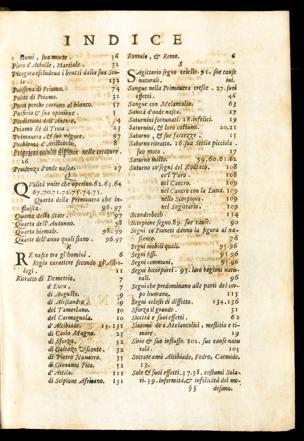 INDICE
fiumi, sua morte. 36
Piero d'Achille, Martiale 32
Pitagora escludeua i brutti dalla sua Scola. 132
Polissena di Priamo. 74
Polite di Priamo. 31
Porci perche corrano al bianco. 57
Porfirio & sua opinione.
Predittioni dell'Autore. 4
Priamo Rè di Troia 23
Primauera, & suo vigore. 97
Problema d'Aristotile. 8
Proprietà occulte diffuse nelle creature. 16
Prudenza d'onde nasca. 27
Q
Qualità vnite che operino. 62.63.64
67.70.71.72.73.74.75.
Quarta della Primauera che influisca. 96.97
Quarta della State 97
Quarta dell'Autunno. 97
Quarte hiemale. 98.99
Quarte dell'anno quali siano 96.97
R
Re nasce tra gl'huomini. 6
Regio carattere secondo gl'Astrologi. 11
Ritratto di Demetrio.
d'Enea. 7
di Augusto. 9
di Alessandro. 9
del Tamerlano. 10
del Carmagnola. 10
d'Alcibiade. 13.131
di Carlo Magno. 25
di Sforza. 32
di Galeazo Visconte. 32
di Pietro Nauarro. 35
di Giouanni Pico. 51
d'Attila. 111
di Scipione Africano. 131
Romulo, & Remo. 6
S
Sagittario segno celeste. 91. sue cause naturali. iui.
Sangue nella Primauera cresce. 27. suoi effetti. 46
Sangue con Melancolia. 63
Sanità d'onde nasca. 27
Saturnini fortunati. 18. infelici. 19
Saturnini, & lor costumi. 20.21
Saturno, & sue fortezze. 15
Saturno ritratto. 16. sua Stella piccola, & suo moto. 17
Saturno misto. 59.60.61.62
Saturno co'segni del Zodiaco. 108
co'l Toro. 108
nel Cancro. 109
nel Cancro con la Luna. 109
nello Scorpione. 109
nel Sagittario. 109
Scanderbech. 114
Scorpione segno. 89. sue cause. 90
Segni co' Pianeti danno la figura al nascente. 76
Segni mobili quali. 95.96
Segni fissi. 95.96
Segni communi. 95.96
Segni bicorporei. 95. loro ragioni naturali. 96
Segni che predominano alle parti del corpo humano. 115
Segni celesti di diletto. 134.136
Sforza il grande. 31
Siccità & suoi effetti. 62
Sintomi de i Melancolici, mestitia e timore. 19
Sirio & suo influsso. 101. sue cause naturali. 105
Socrate amò Alcibiade, Fedro, Carmide. 13.
Sole & suoi effetti. 37.38. costumi Solari. 39. infermità, & infelicità del me-
§§ desimo.